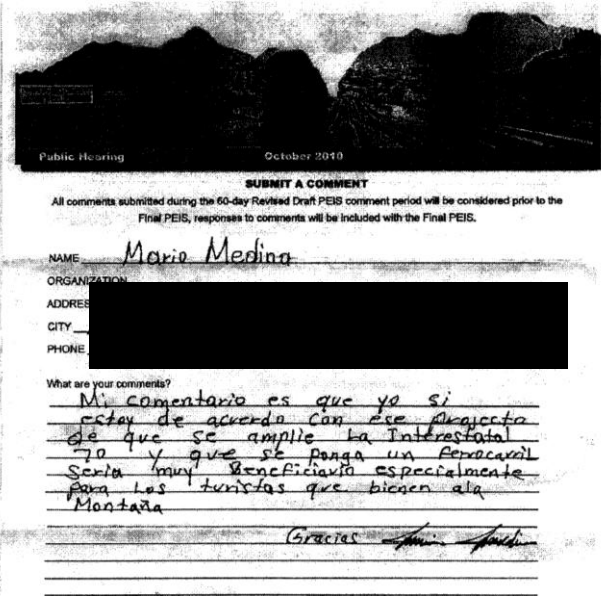 Public Hearing October 2010
SUBMIT A COMMENT
All comments submitted during the 60-day Revised Draft PEIS comment period will be considered prior to the
Final PEIS, responses to comments will be included with the Final PEIS.
NAME Mario Medina
ORGANIZATION
ADDRES
CITY
PHONE
What are your comments?
Mi comentario es que yo si
estoy de acuerdo con ese projecto
de que se amplie La Interestatal
70 y que se ponga un ferrocarril
Seria muy Beneficiario especialmente
para Los turistas que bienen ala
Montaña
Gracias